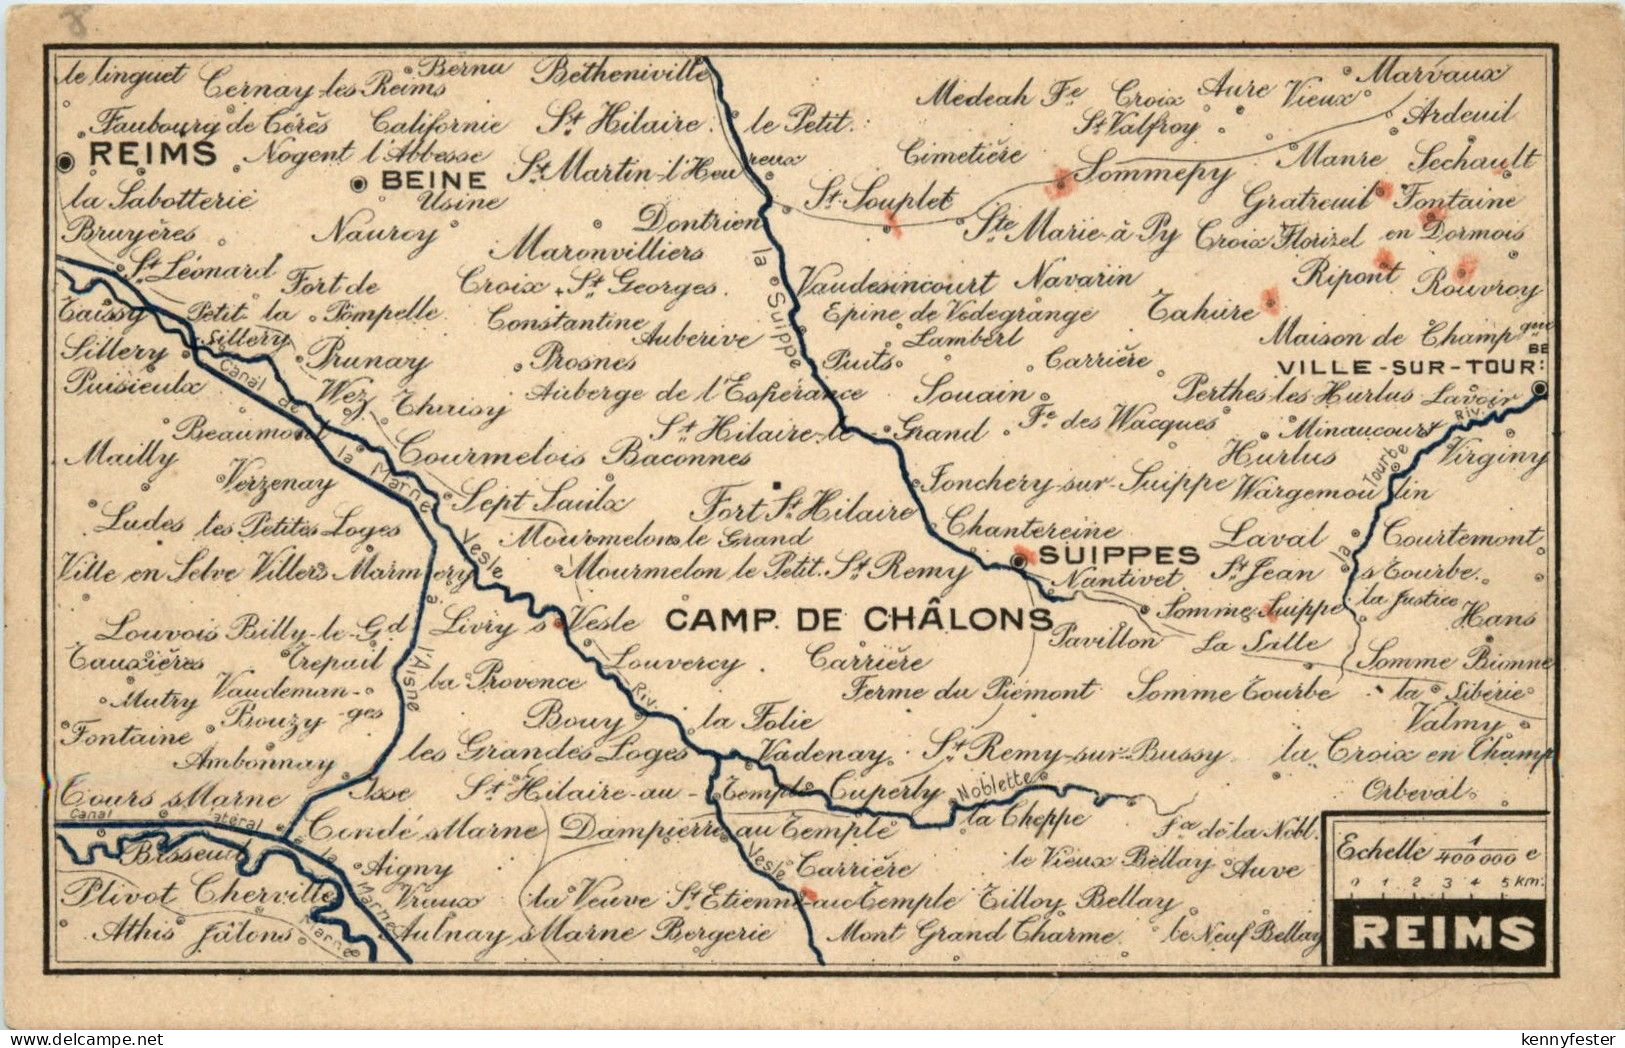 le linguet Cernay-les Reims Bernu Bétheniville Medeah Fe Croix Aure Vieux Marvaux
Faubourg de Cérès Californie St Hilaire le Petit St Valfroy Ardeuil
REIMS Nogent l'Abbesse St Martin-l'Heureux Cimetière Sommepy Manre Sechault
BEINE
la Sabotterie Usine Dontrien St Souplet Gratreuil Fontaine
Bruyères Nauroy Maronvilliers la Suippe Ste Marie-à Py Croix Florizel en Dormois
St Léonard Fort de Croix St Georges Vaudesincourt Navarin Ripont Rouvroy
Taissy Petit la Pompelle Constantine Auberive Epine de Vedegrange Tahure
Sillery Sillery Prunay Prosnes Lambert Maison de Champque
Puisieulx Canal de Puits Carrière VILLE-SUR-TOURBE
Wez Thuisy Auberge de l'Espérance Souain Perthes les Hurlus Lavoir
Beaumont St Hilaire-le-Grand Fe des Wacques Minaucourt Riv.
Mailly la Marne Courmelois Baconnes Hurlus Virginy
Verzenay Sept Saulx Jonchery-sur-Suippe Wargemoulin Tourbe
Ludes les Petites Loges Fort St Hilaire Chantereine Laval Courtemont
Vesle Mourmelon le Grand SUIPPES la
Ville en Selve Villers Marmery Mourmelon le Petit St Remy Nantivet St Jean s Tourbe
à CAMP DE CHÂLONS Somme-Suippe la Justice Hans
Louvois Billy-le-Gd Livry s Vesle Pavillon La Salle
Tauxières Trepail l'Aisne Louvercy Carrière Somme Bionne
Mutry Vaudemanges la Provence Riv. Ferme du Piémont Somme Tourbe la Sibérie
Fontaine Bouzy Bouy la Folie Valmy
Ambonnay les Grandes Loges Vadenay St Remy-sur-Bussy la Croix en Champ
Tours s Marne Isse St Hilaire-au-Temple Cuperly Noblette Orbeval
Canal latéral à la Marne Condé s Marne Dampierre au Temple la Cheppe Fe de la Nobl.
Bisseuil Aigny Vesle Carrière le Vieux Bellay Auve
Plivot Cherville Vraux la Veuve St Etienne-au Temple Tilloy Bellay
Athis Jâlons Marne Aulnay s Marne Bergerie Mont Grand Charme le Neuf Bellay
Echelle 1/400 000 e
0 1 2 3 4 5 km.
REIMS
kennyfester